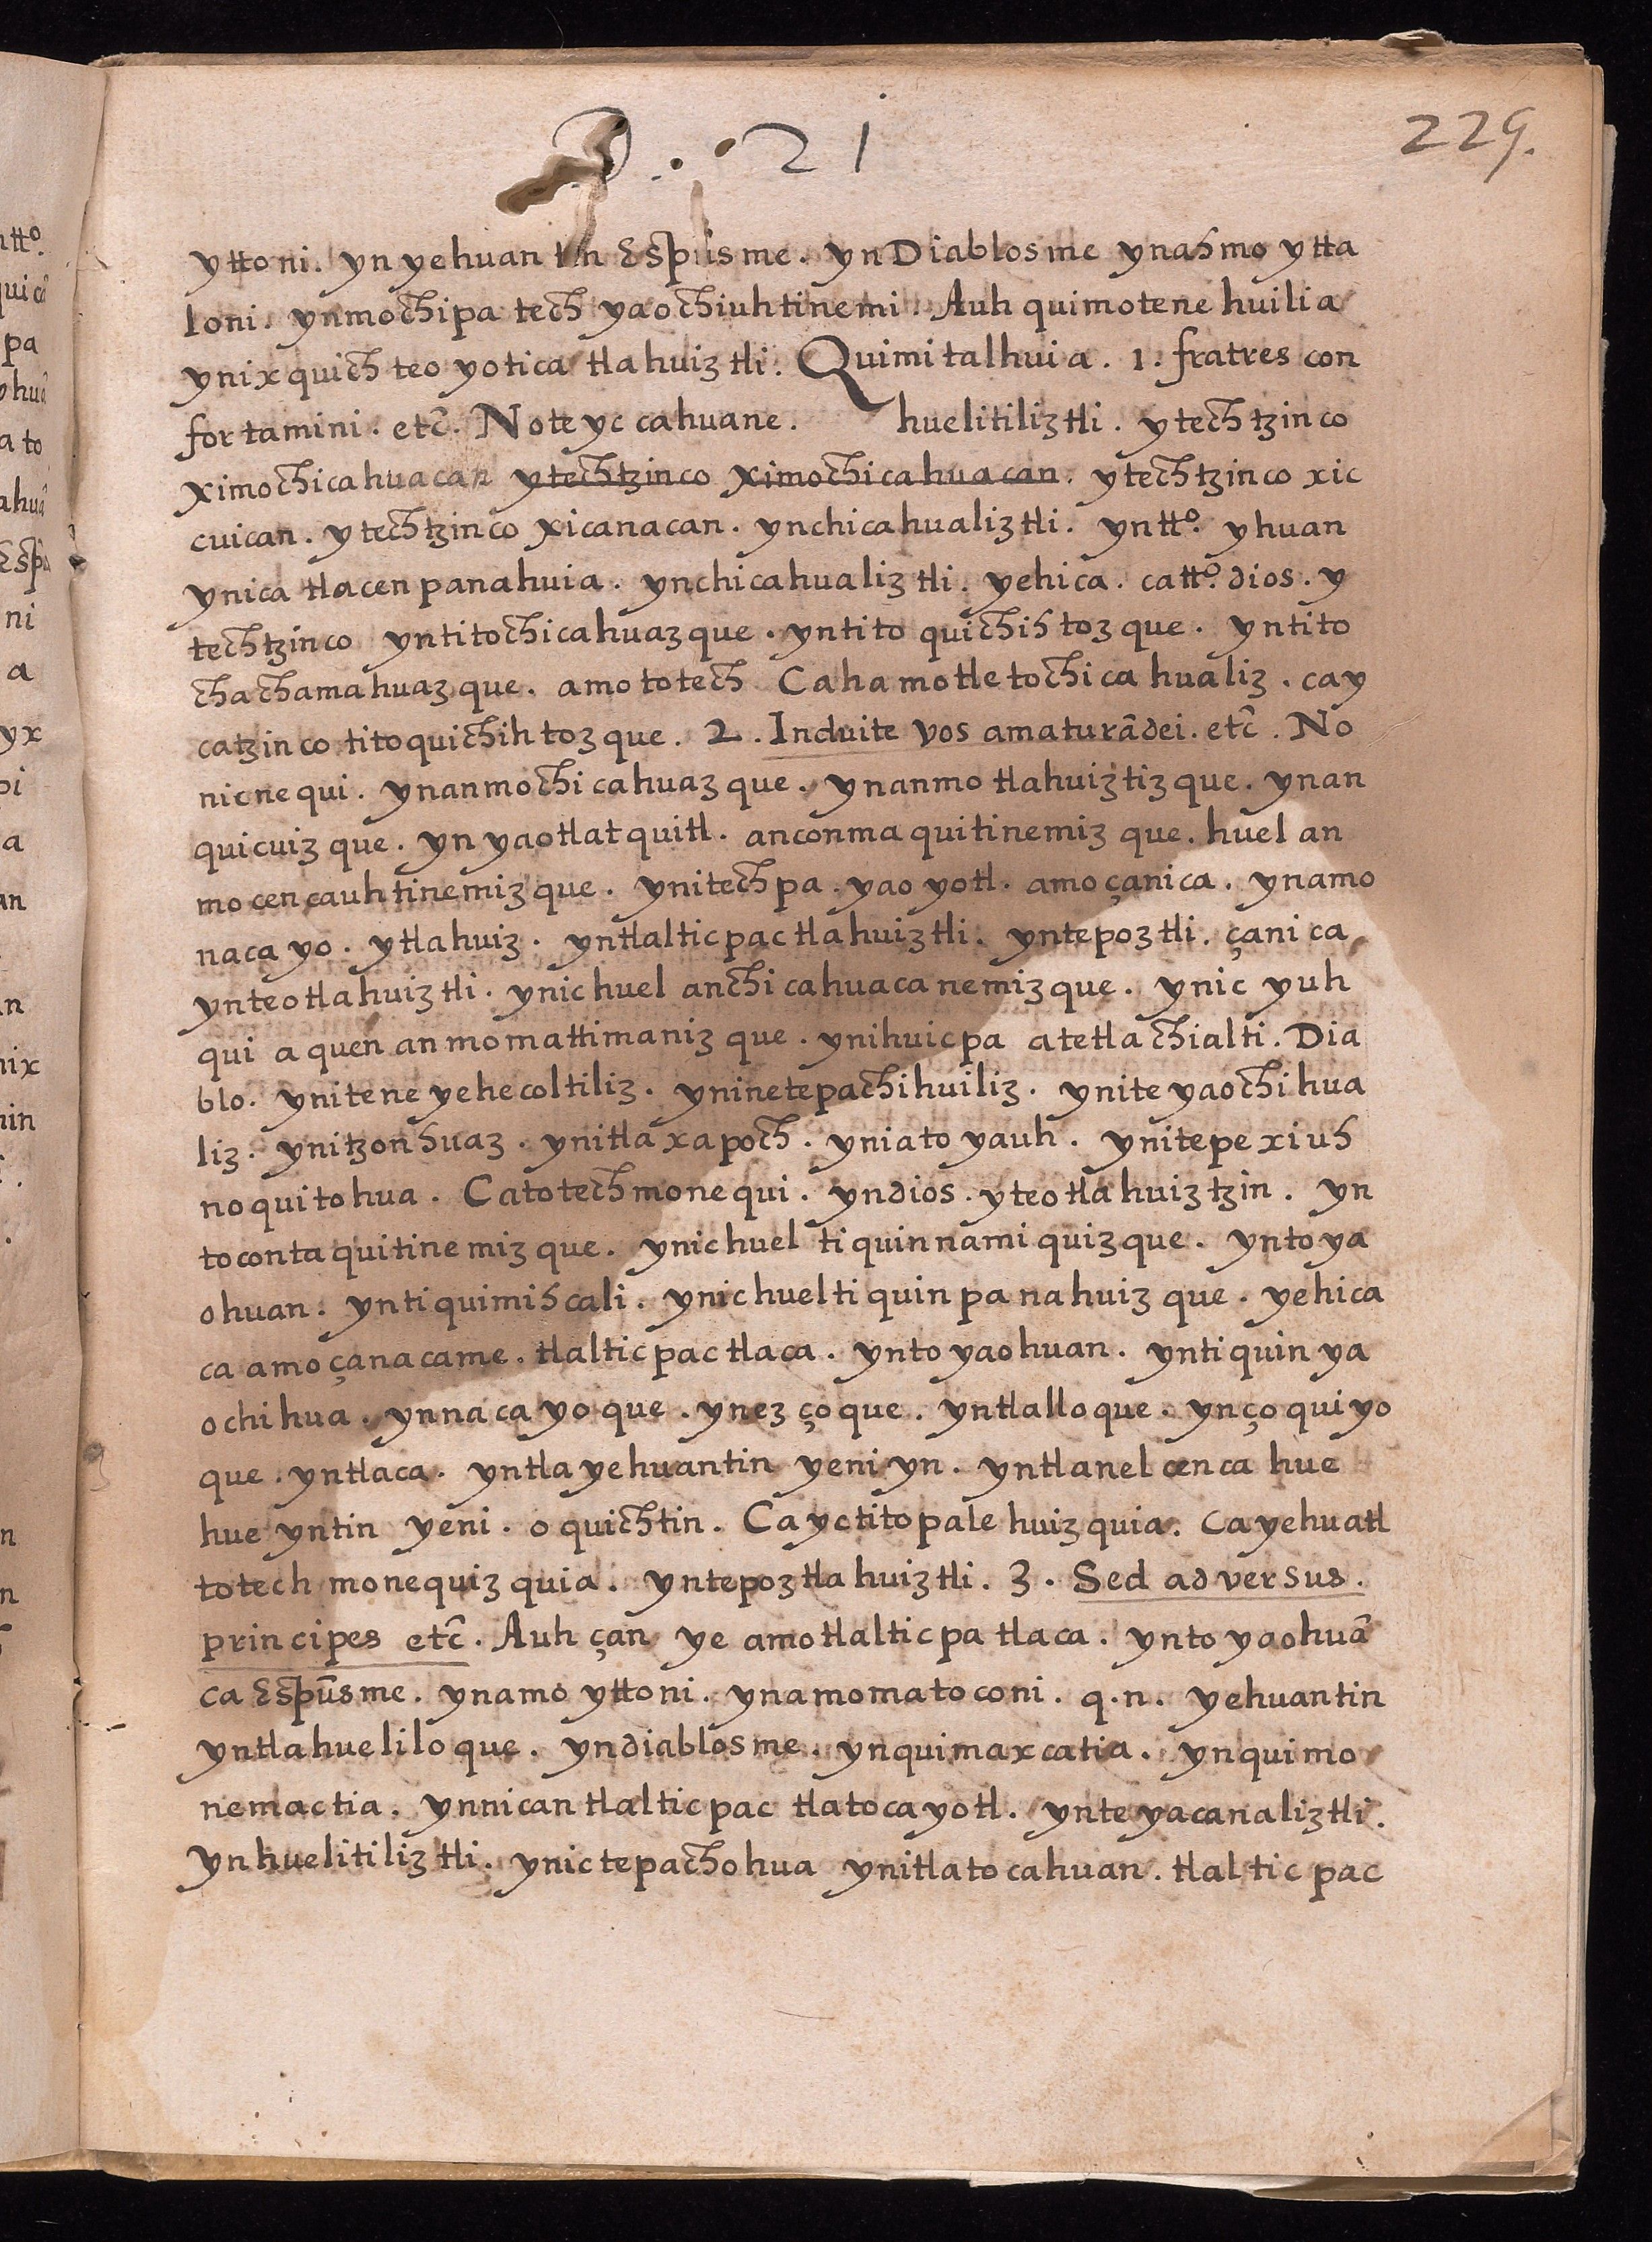 D . . 21
229.
yttoni. yn yehuantin Espũsme. yn Diablosme ynahmo ytta
loni. ynmochipa tech yaochiuhtinemi. Auh quimotenehuilia
ynixquich teoyotica tlahuiztli. Quimitalhuia. 1. fratres con
fortamini. etc̃. Noteyccahuane. huelitiliztli. ytechtzinco
ximochicahuacan ytechtzinco ximochicahuacan. ytechtzinco xic
cuican. ytechtzinco xicanacan. ynchicahualiztli. yntt.º yhuan
ynica tlacenpanahuia. ynchicahualiztli. yehica. catt.º dios. y
techtzinco yntitochicahuazque. yntitoquichihtozque. yntito
chachamahuazque. amo totech Cahamotle tochicahualiz. cay
catzinco titoquichihtozque. 2. Induite vos amaturãdei. etc̃. No
nicnequi. ynanmochicahuazque. ynanmotlahuiztizque. ynan
quicuizque. yn yaotlatquitl. anconmaquitinemizque. huel an
mocencauhtinemizque. ynitechpa. yaoyotl. amo çanica. ynamo
nacayo. ytlahuiz. yntlalticpactlahuiztli. yntepoztli. çanica
ynteotlahuiztli. ynic huel anchicahuacanemizque. ynic yuh
qui aquen anmomattimanizque. ynihuicpa atetlachialti. Dia
blo. yniteneyehecoltiliz. yninetepachihuiliz. yniteyaochihua
liz. ynitzonhuaz. ynitlaxapoch. yniatoyauh. ynitepexiuh
noquitohua. Catotechmonequi. yndios. yteotlahuiztzin. yn
tocontaquitinemizque. ynichuel tiquinnamiquizque. yntoya
ohuan. yntiquimihcali. ynichueltiquinpanahuizque. yehica
ca amo çanacame. tlalticpactlaca. yntoyaohuan. yntiquinya
ochihua. ynnacayoque. ynezçoque. yntlalloque. ynçoquiyo
que. yntlaca. yntla yehuantin yeniyn. yntlanel cenca hue
hueyntin yeni. oquichtin. Cayctitopalehuizquia. Cayehuatl
totech monequizquia. yntepoztlahuiztli. 3. Sed adversus.
principes etc̃. Auh çan ye amo tlalticpatlaca. yntoyaohuã
ca Espũsme. ynamo yttoni. ynamomatoconi. q.n. yehuantin
yntlahueliloque. yndiablosme. ynquimaxcatia. ynquimo
nemactia. ynnican tlalticpac tlatocayotl. ynteyacanaliztli.
ynhuelitiliztli. ynictepachohua ynitlatocahuan. tlalticpac